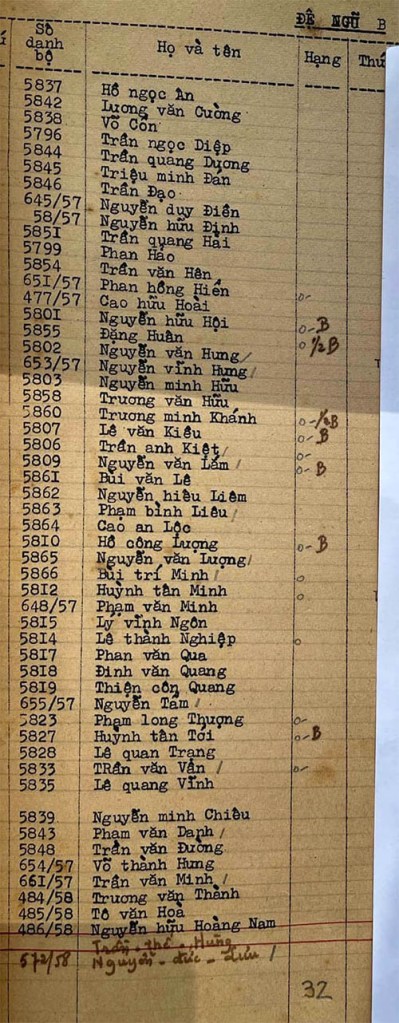 ĐÊ NGŨ B
Số danh bộ Họ và tên Hạng Thứ
5837 Hồ ngọc Ân
5842 Lương văn Cường
5838 Võ Côn
5796 Trần ngọc Diệp
5844 Trần quang Dương
5845 Triệu minh Đán
5846 Trần Đạo
645/57 Nguyễn duy Điền
58/57 Nguyễn hữu Định
5851 Trần quang Hải
5799 Phan Hào
5854 Trần văn Hên
651/57 Phan hồng Hiển
477/57 Cao hữu Hoài o-
5801 Nguyễn hữu Hội
5855 Đặng Huân o-B
5802 Nguyễn văn Hưng / o ½B
653/57 Nguyễn vĩnh Hưng /
5803 Nguyễn minh Hữu
5858 Trương văn Hữu
5860 Trương minh Khánh o-½B
5807 Lê văn Kiều o-B
5806 Trần anh Kiệt / o-
5809 Nguyễn văn Lắm / o-B
5861 Bùi văn Lê
5862 Nguyễn hiếu Liêm
5863 Phạm bình Liêu /
5864 Cao an Lộc
5810 Hồ công Lượng o-B
5865 Nguyễn văn Lượng /
5866 Bùi trí Minh / o
5812 Huỳnh tân Minh o
648/57 Phạm văn Minh
5815 Lý vĩnh Ngôn
5814 Lê thành Nghiệp o
5817 Phan văn Qua
5818 Đinh văn Quang
5819 Thiện côn Quang
655/57 Nguyễn Tấm /
5823 Phạm long Thượng o-
5827 Huỳnh tân Tới o-B
5828 Lê quan Trang
5833 TRần văn Vân / o-
5835 Lê quang Vĩnh
5839 Nguyễn minh Chiếu
5843 Phạm văn Danh /
5848 Trần văn Đường
654/57 Võ thành Hưng
661/57 Trần văn Minh /
484/58 Trương văn Thành
485/58 Tô văn Hoa
486/58 Nguyễn hữu Hoàng Nam
Trần - thế - Hùng
572/58 Nguyễn - đức - /
32